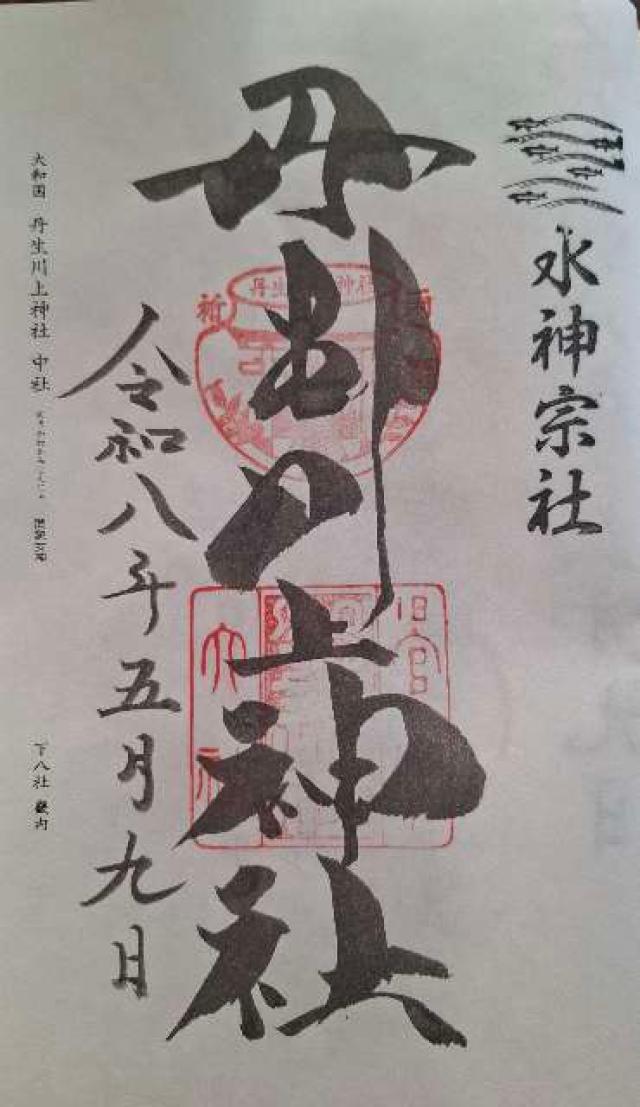 水神宗社
丹生川上神社
令和八年五月九日
大和国 丹生川上神社 中社
下八社 畿内